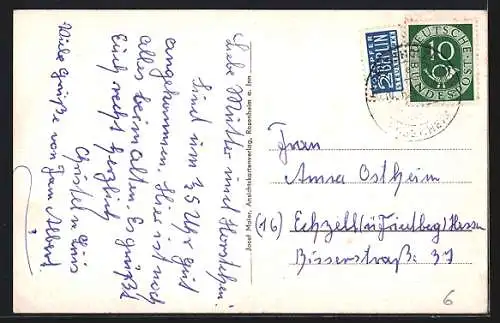 Liebe Mutter und Horstchen!
Sind um ½5 Uhr gut
angekommen. Hier ist noch
alles beim alten. Es grüßt
Euch recht herzlich
Christel u.
Viele Grüße von
Josef Maier, Ansichtskartenverlag, Rosenheim a. Inn
NOTOPFER
2 BERLIN
STEUERMARKE
DEUTSCHE
BUNDESPOST
10
Frau
Anna Ostheim
(16) Echzell (ü/Friedberg) Hessen
Bisserstraß: 37
6